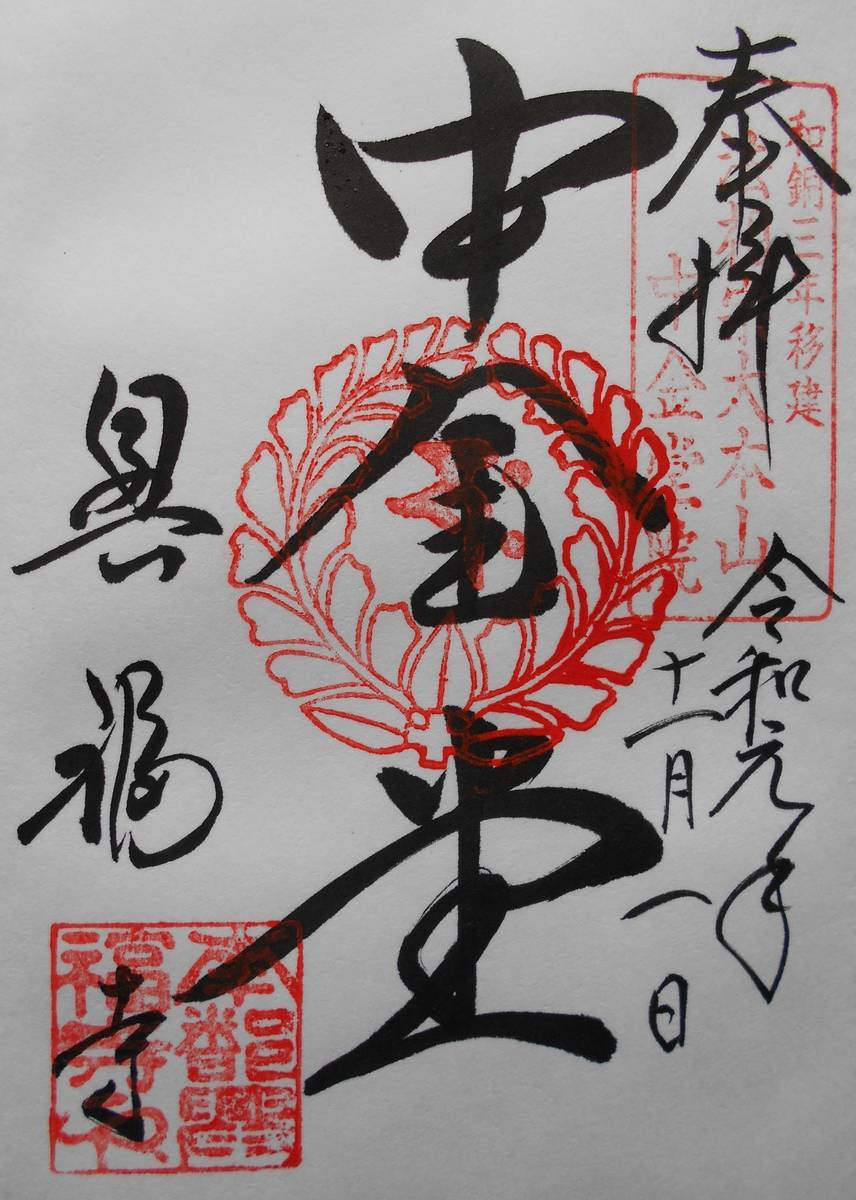 和銅三年移建
法相宗大本山
中金堂院
奉拝
令和元年
十一月一日
中金堂
興福寺